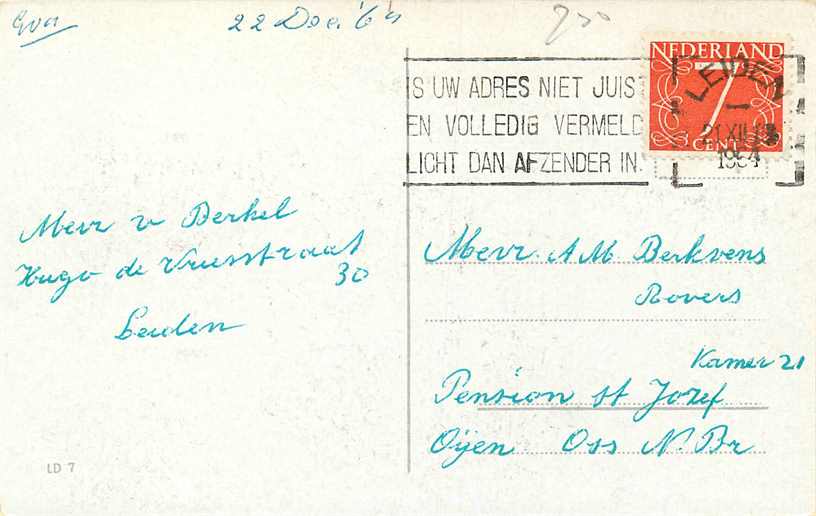 22 Dec '64
NEDERLAND
7
CENT
LEIDEN
21 XII 18
1964
IS UW ADRES NIET JUIST
EN VOLLEDIG VERMELD
LICHT DAN AFZENDER IN.
Mevr v Berkel
Hugo de Vriesstraat
30
Leiden
Mevr. A M Berkvens
Rovers
Kamer 21
Pension St Jozef
Oijen Oss N. Br
LD 7